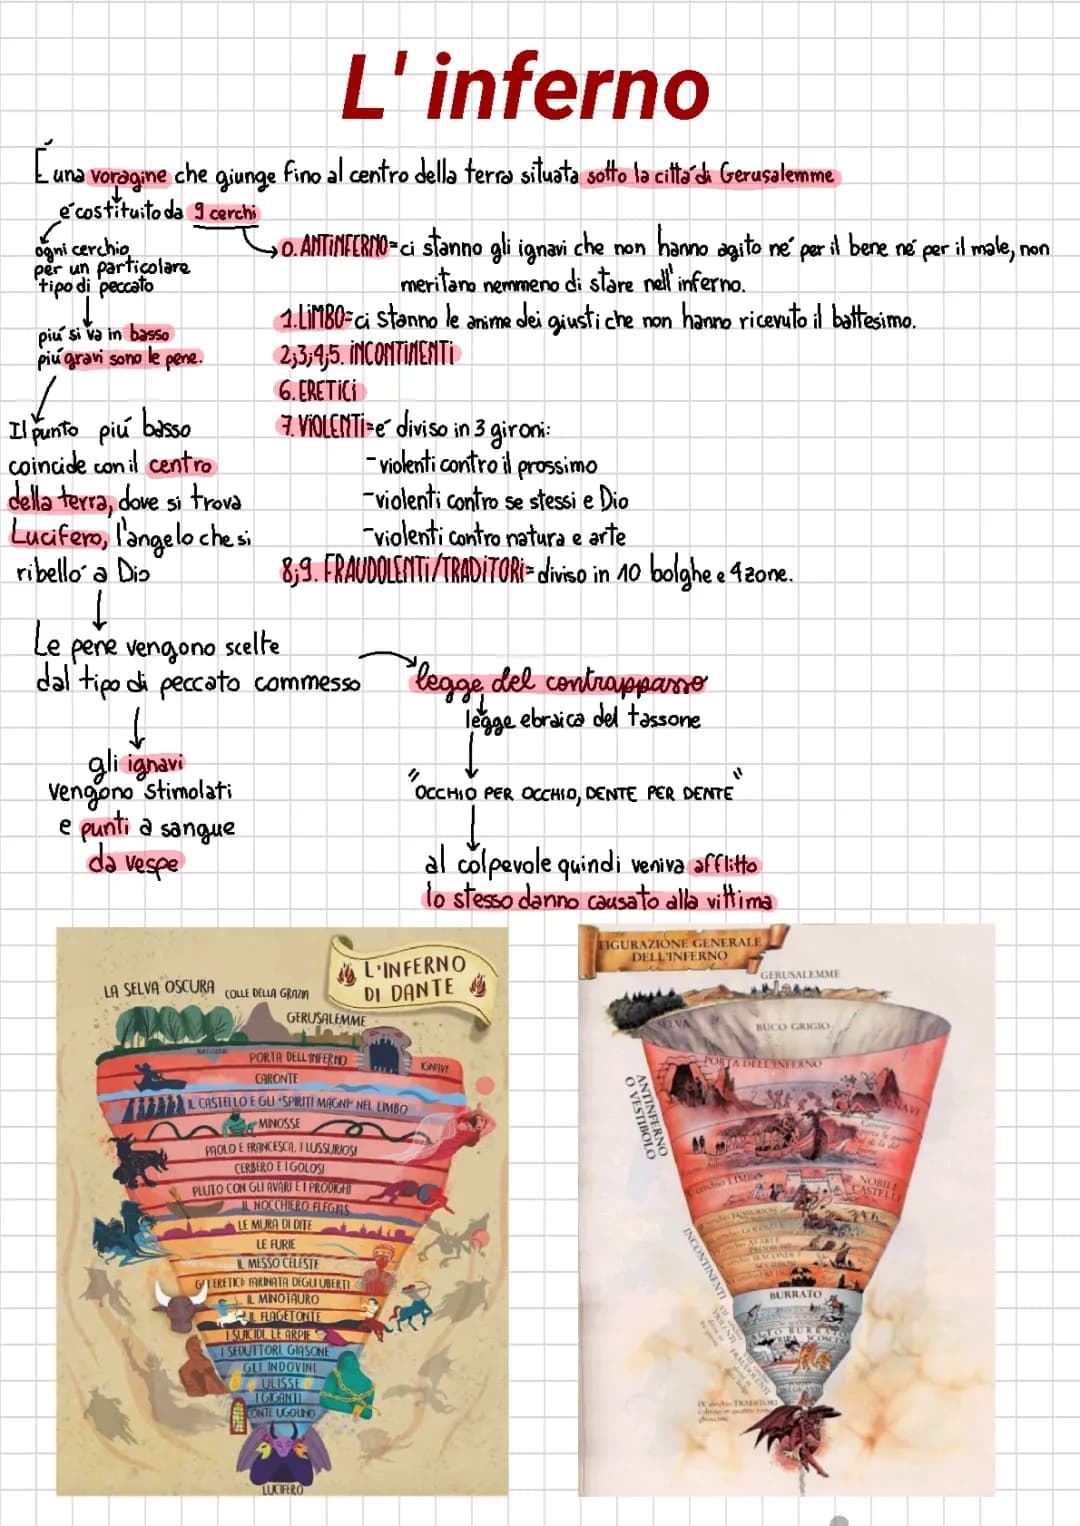 L' inferno
É una voragine che giunge fino al centro della terra situata sotto la cittá di Gerusalemme
é costituito da 9 cerchi
ogni cerchio
per un particolare
tipo di peccato
piú si va in basso
piú gravi sono le pene.
0. ANTINFERNO=ci stanno gli ignavi che non hanno agito né per il bene né per il male, non
meritano nemmeno di stare nell'inferno.
1. LIMBO=ci stanno le anime dei giusti che non hanno ricevuto il battesimo.
2,3,4,5. INCONTINENTI
6. ERETICI
7. VIOLENTI=é diviso in 3 gironi:
-violenti contro il prossimo
-violenti contro se stessi e Dio
-violenti contro natura e arte
8;9. FRAUDOLENTI/TRADITORI=diviso in 10 bolghe e 4 zone.
Il punto piú basso
coincide con il centro
della terra, dove si trova
Lucifero, l'angelo che si
ribelló a Dio
Le pene vengono scelte
dal tipo di peccato commesso
gli ignavi
vengono stimolati
e punti a sangue
da vespe
legge del contrappasso
legge ebraica del tassone
"OCCHIO PER OCCHIO, DENTE PER DENTE"
al colpevole quindi veniva afflitto
lo stesso danno causato alla vittima
L'INFERNO
DI DANTE
LA SELVA OSCURA
COLLE DELLA GRAZIA
GERUSALEMME
PORTA DELL'INFERNO
IGNAVI
CARONTE
IL CASTELLO E GLI "SPIRITI MAGNI" NEL LIMBO
MINOSSE
PAOLO E FRANCESCA, I LUSSURIOSI
CERBERO E I GOLOSI
PLUTO CON GLI AVARI E I PRODIGHI
IL NOCCHIERO FLEGIAS
LE MURA DI DITE
LE FURIE
IL MESSO CELESTE
GLI ERETICI: FARINATA DEGLI UBERTI
IL MINOTAURO
IL FLAGETONTE
I SUICIDI, LE ARPIE
I SEDUTTORI, GIASONE
GLI INDOVINI
ULISSE
I GIGANTI
CONTE UGOLINO
LUCIFERO
FIGURAZIONE GENERALE
DELL'INFERNO
GERUSALEMME
SELVA
BUCO GRIGIO
PORTA DELL'INFERNO
ANTINFERNO
O VESTIBOLO
IGNAVI
LIMBO
NOBILE
CASTELLO
INCONTINENTI
BURRATO